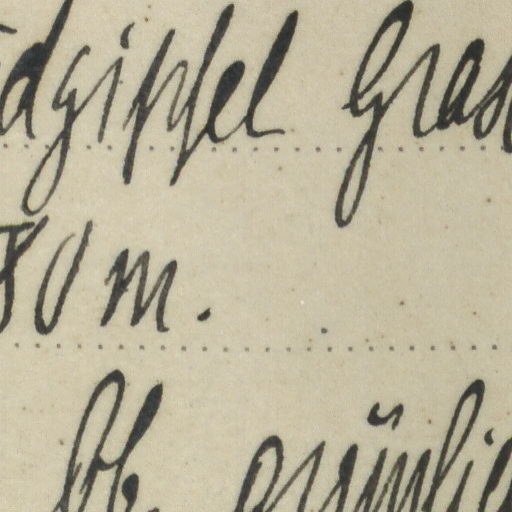 dgipfel Gras
80 m.
grünlic